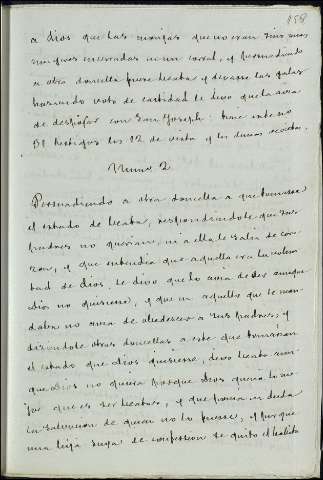 158
a Dios que las monjas que no eran sino unas
mugeres encerradas en un corral, y persuadiendo
a otra doncella fuese beata y dexase las galas
haciendo voto de castidad le dixo que la avia
de desposar con San Joseph: tiene este no
31 testigos los 12 de vista y los demas de oidas.
Numo 2
Persuadiendo a otra doncella a que tomasse
el estado de beata, respondiendole que sus
padres no querian, ni a ella le salia de cora
zon, y que entendia que aquella era la volun
tad de Dios, le dixo que lo avia de ser aunque
Dios no quisiesse, y que en aquello que le man
daban no avia de obedescer a sus padres, y
diziendole otras doncellas a este que tomarian
el estado que Dios quisiesse, dixo beata aun
que Dios no quiera porque Dios queria lo me
jor que es ser beatas, y que ponia en duda
la salvacion de quien no lo fuesse, y porque
una hija suya de confession se quito el habito